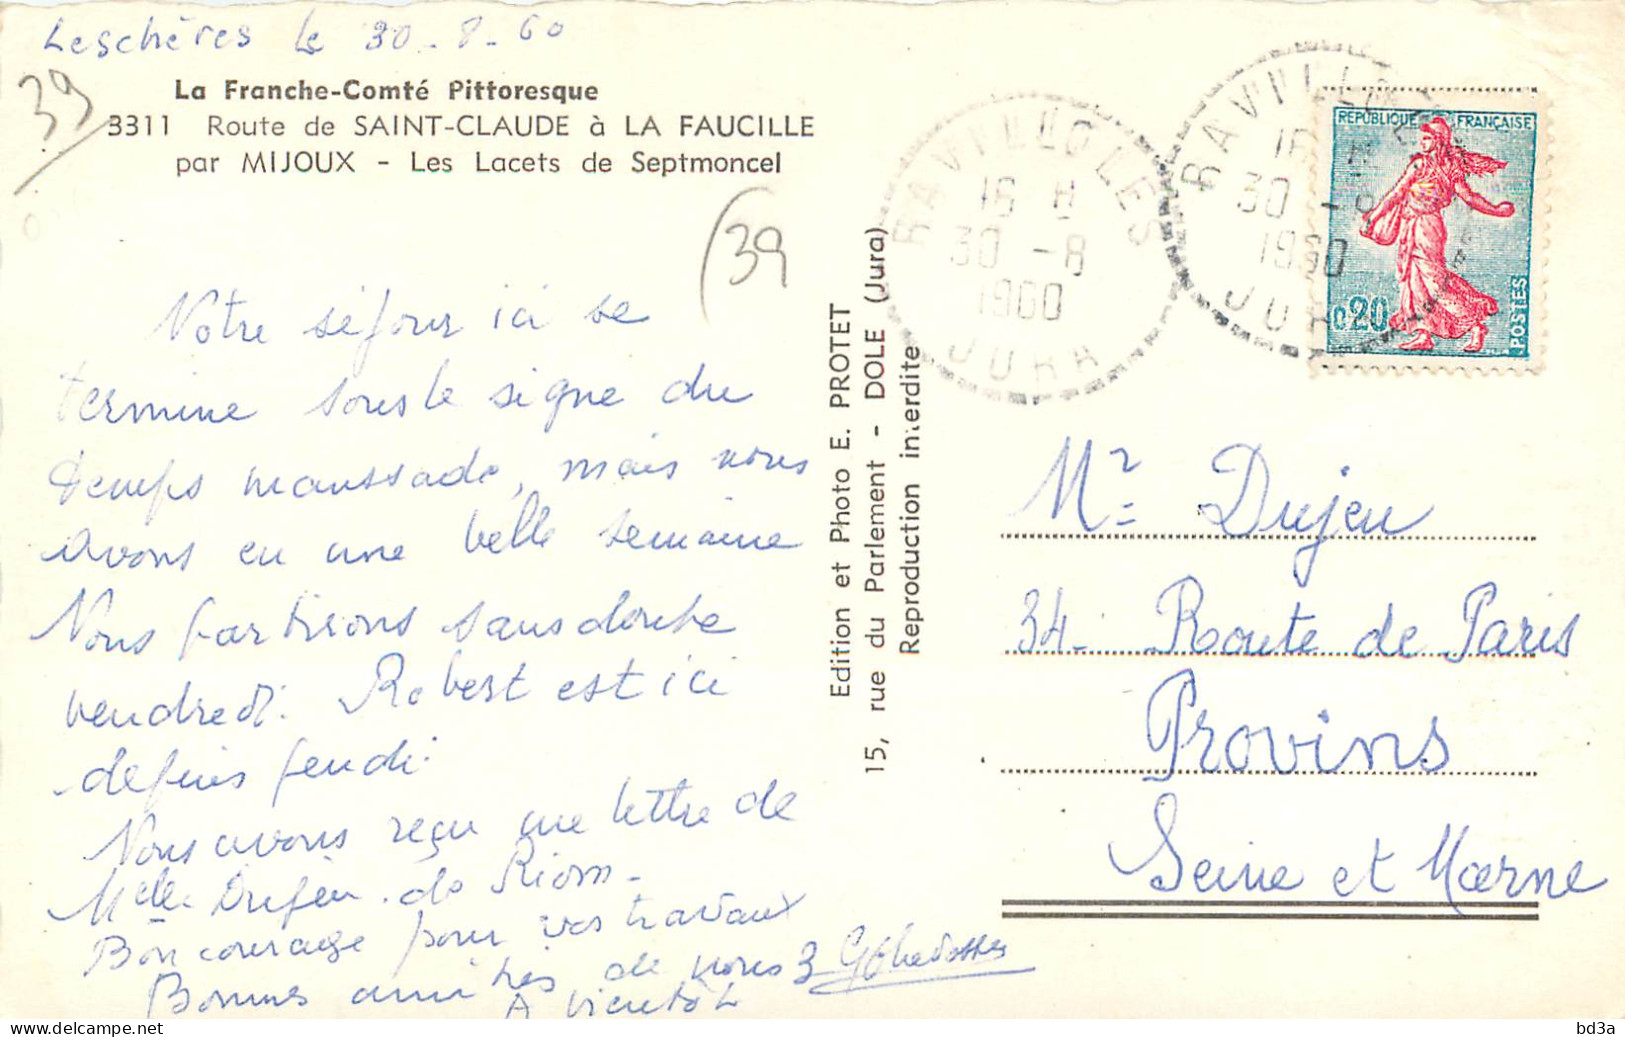 Leschères le 30-8-60
39
La Franche-Comté Pittoresque
3311 Route de SAINT-CLAUDE à LA FAUCILLE
par MIJOUX - Les Lacets de Septmoncel
(39
Notre séjour ici se
termine sous le signe du
temps maussade, mais nous
avons eu une belle semaine
Nous partirons sans doute
vendredi. Robert est ici
depuis jeudi.
Nous avons reçu une lettre de
Melle Dujeu de Riom-
Bon courage pour vos travaux
Bonnes amitiés de nous 3
A bientôt
Edition et Photo E. PROTET
15, rue du Parlement - DOLE (Jura)
Reproduction interdite
RAVILLOLES
16 H
30 -8
1960
JURA
RAVILLOLES
16 H
30 -8
1960
JURA
REPUBLIQUE FRANÇAISE
0,20
POSTES
Mr Dujeu
34- Route de Paris
Provins
Seine et Marne
bd3a